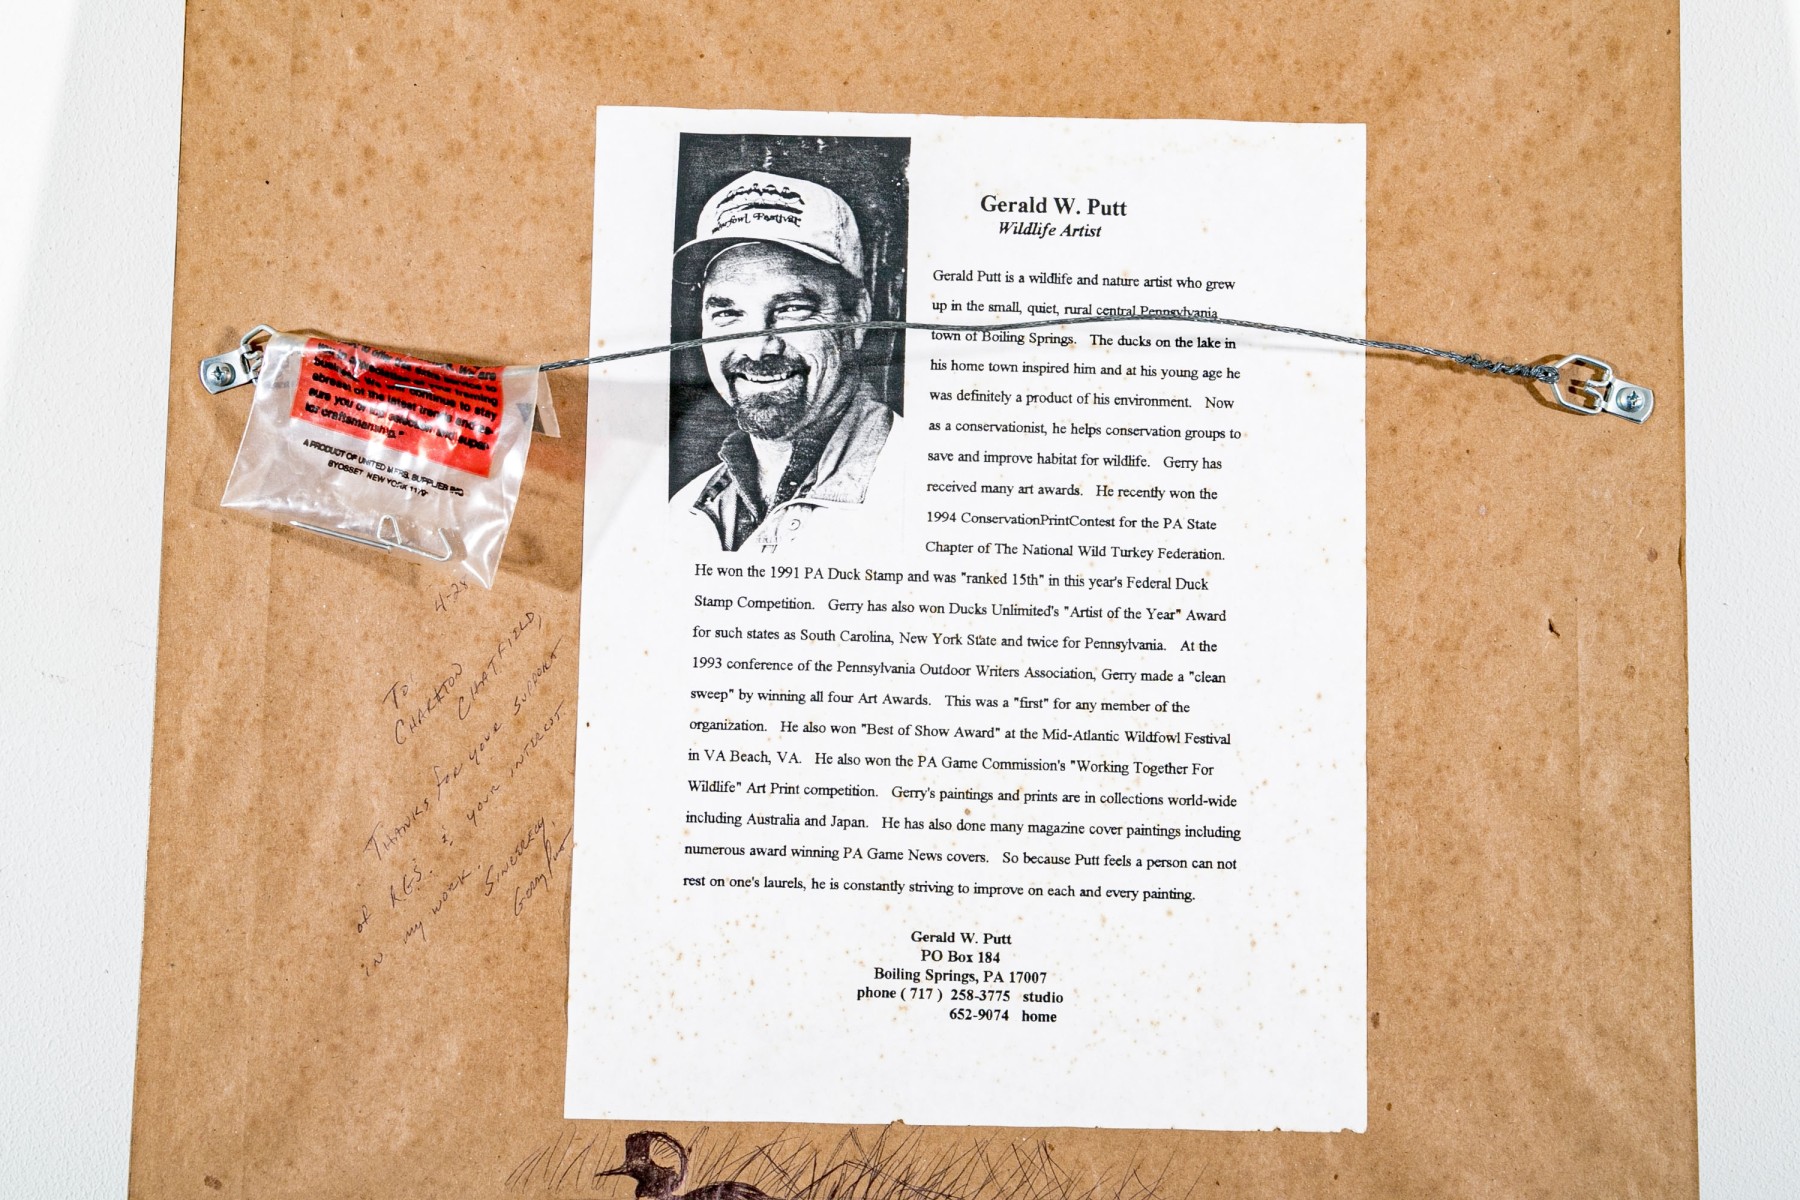 Festival
Gerald W. Putt
Wildlife Artist
Gerald Putt is a wildlife and nature artist who grew
up in the small, quiet, rural central Pennsylvania
town of Boiling Springs. The ducks on the lake in
his home town inspired him and at his young age he
was definitely a product of his environment. Now
as a conservationist, he helps conservation groups to
save and improve habitat for wildlife. Gerry has
received many art awards. He recently won the
1994 ConservationPrintContest for the PA State
Chapter of The National Wild Turkey Federation.
He won the 1991 PA Duck Stamp and was "ranked 15th" in this year's Federal Duck
Stamp Competition. Gerry has also won Ducks Unlimited's "Artist of the Year" Award
for such states as South Carolina, New York State and twice for Pennsylvania. At the
1993 conference of the Pennsylvania Outdoor Writers Association, Gerry made a "clean
sweep" by winning all four Art Awards. This was a "first" for any member of the
organization. He also won "Best of Show Award" at the Mid-Atlantic Wildfowl Festival
in VA Beach, VA. He also won the PA Game Commission's "Working Together For
Wildlife" Art Print competition. Gerry's paintings and prints are in collections world-wide
including Australia and Japan. He has also done many magazine cover paintings including
numerous award winning PA Game News covers. So because Putt feels a person can not
rest on one's laurels, he is constantly striving to improve on each and every painting.
Gerald W. Putt
PO Box 184
Boiling Springs, PA 17007
phone ( 717 ) 258-3775 studio
652-9074 home
continue to stay
abreast of the latest trends and
sure you of and super-
ior craftsmanship."
A PRODUCT OF UNITED MFRS. SUPPLIES INC
SYOSSET NEW YORK
4-28
To:
CHARLTON
CHATFIELD,
THANKS for your SUPPORT
of & your INTEREST
in my work.
SINCERELY,
Gerry Putt